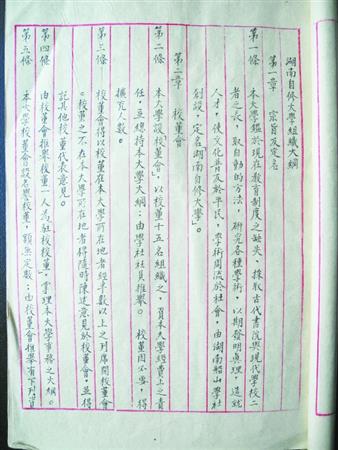 湖南自修大學組織大綱
第一章 宗旨及定名
第一條 本大學鑑於現在教育制度之缺失，採取古代書院與現代學校二
者之長，取自動的方法，研究各種學術，以期發明真理，造就
人才，使文化普及於平民，學術周流於社會，由湖南船山學社
創設，定名湖南自修大學。
第二章 校董會
第二條 本大學設校董會，以校董十五名組織之，負本大學經費上之責
任，並總持本大學大綱；由學社社員推舉。校董因必要，得
擴充人數。
第三條 校董會得以校董在本大學所在地者經半數以上之列席開校董會
。校董之不在本大學所在地者得隨時陳述意見於校董會，並得
託其他校董代表意見。
第四條 由校董會推舉校董一人為駐校校董，掌理本大學事務之大綱。
第五條 本大學校董會設名譽校董，額無定數；由校董會推舉有下列資